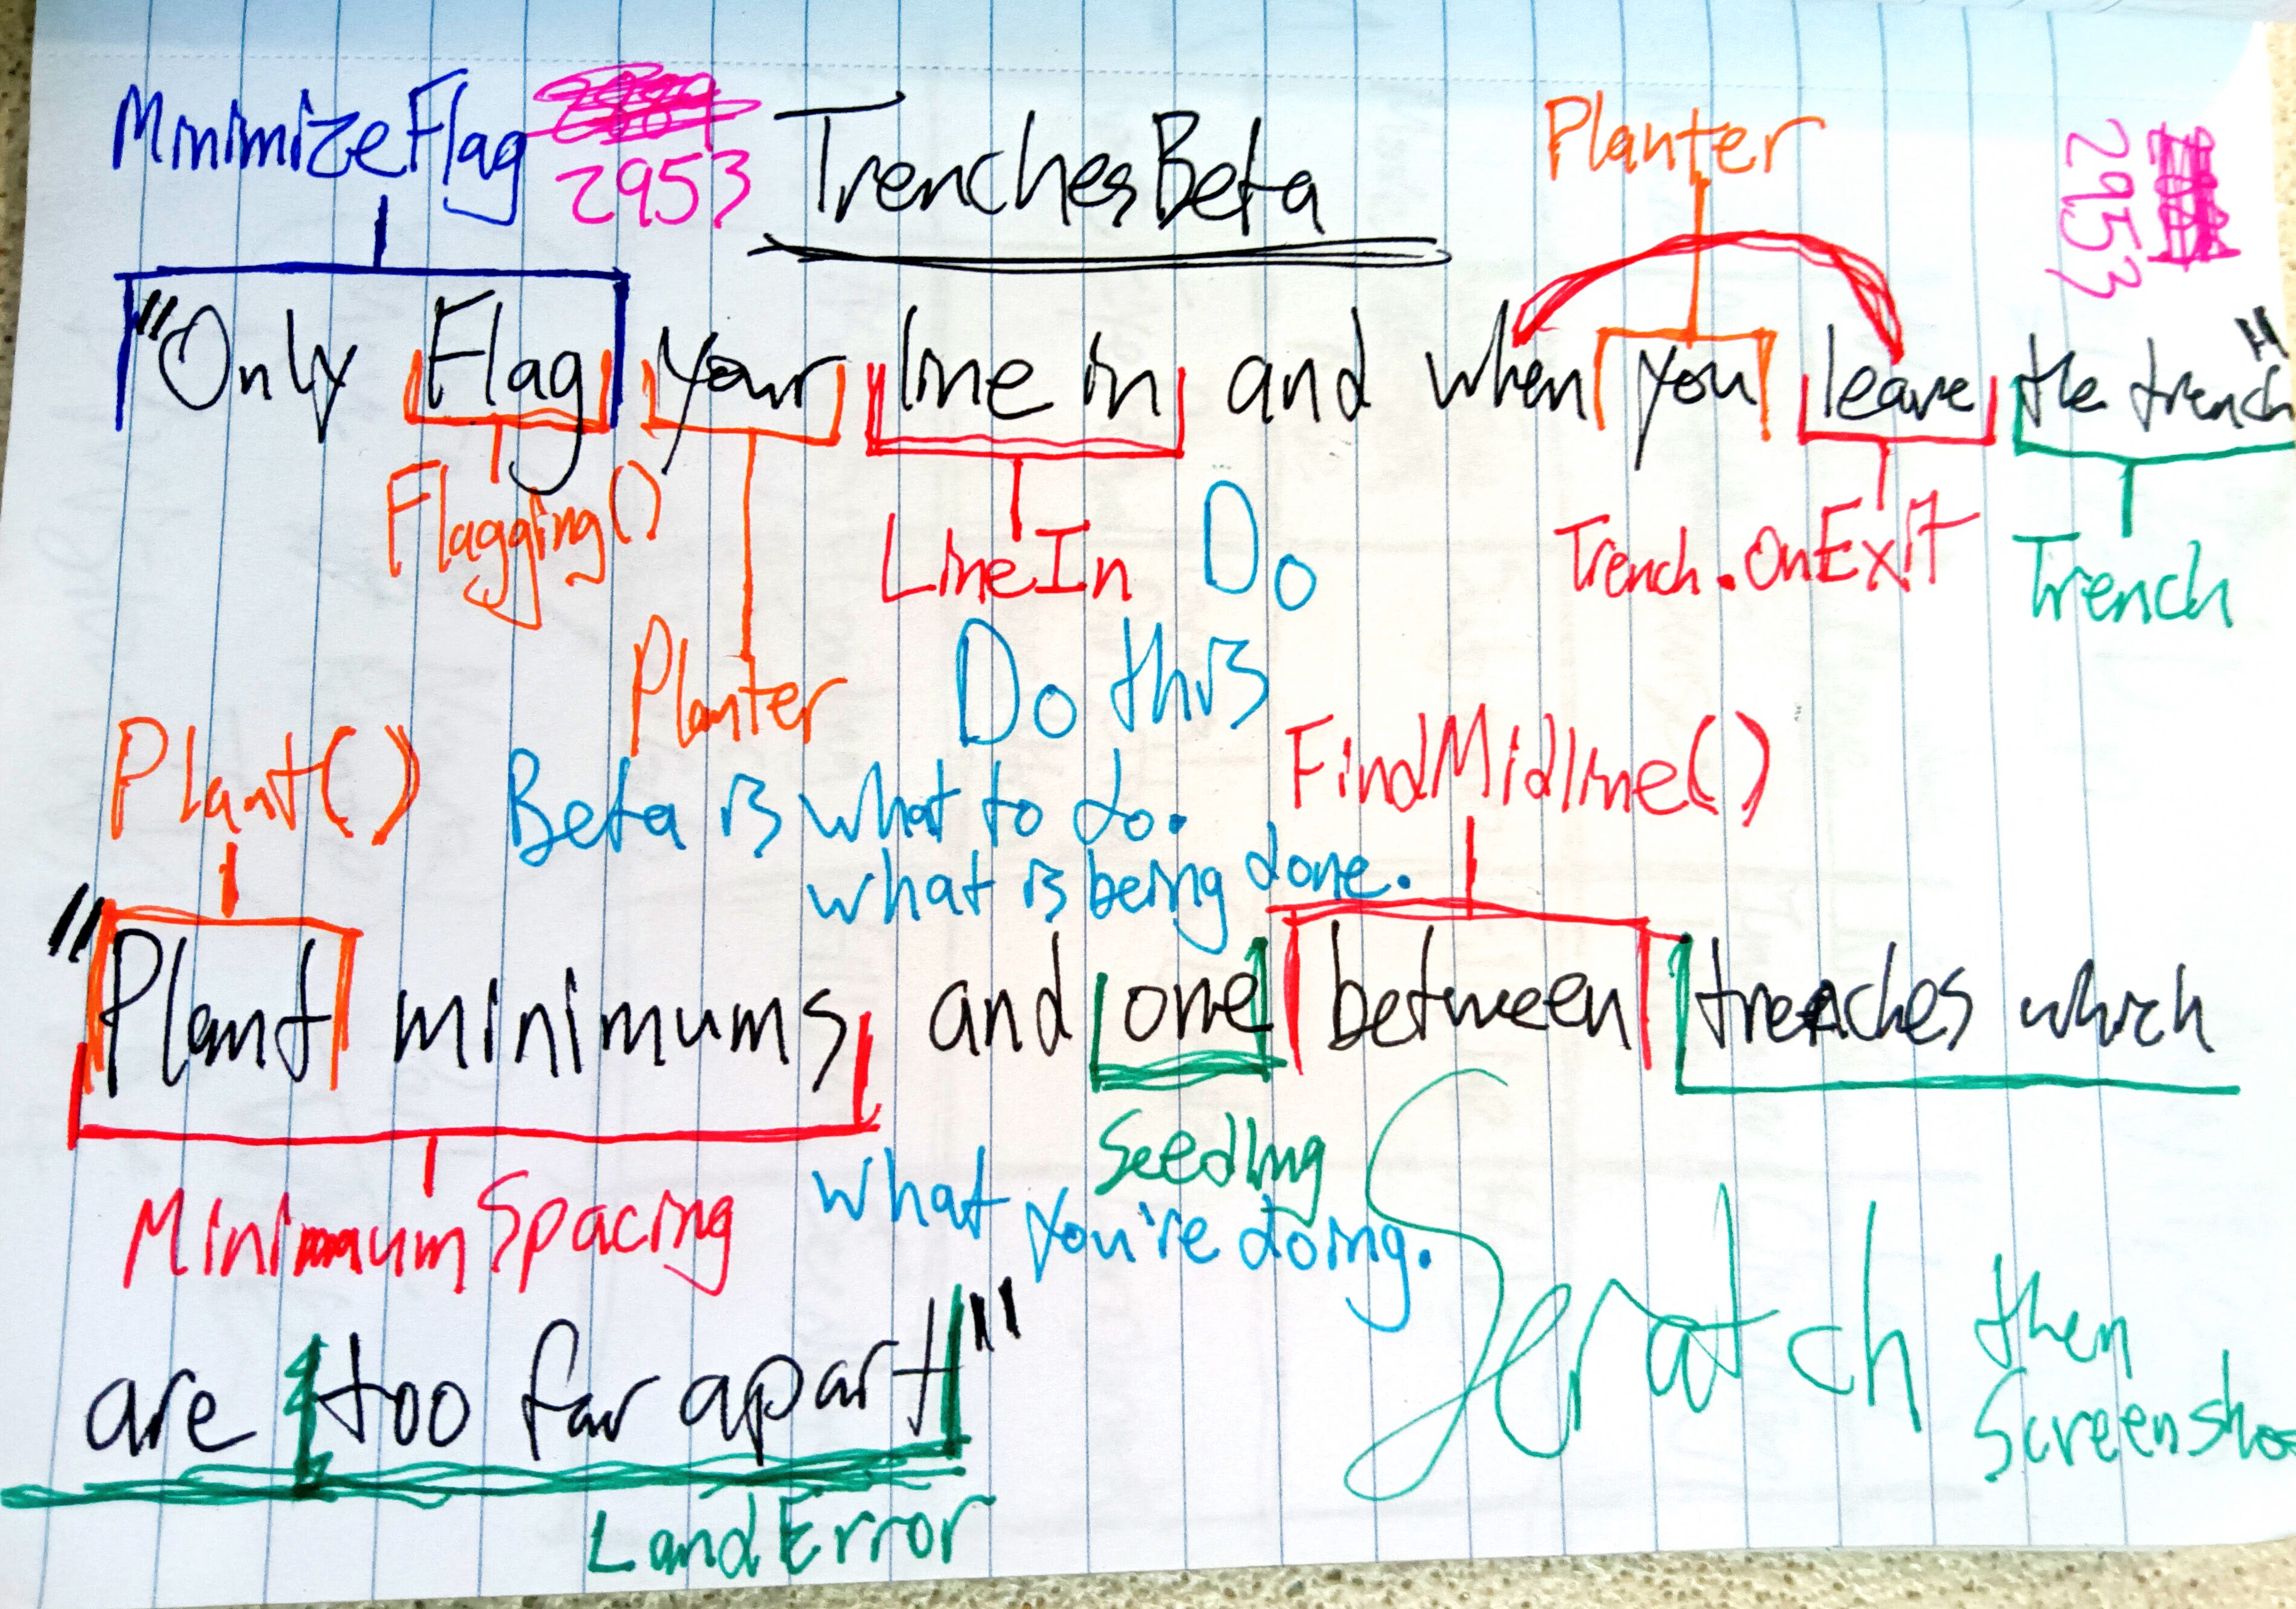 MinimizeFlag
2953
TrenchesBeta
Planter
2953
"Only Flag your line in and when you leave the trench"
Flagging()
LineIn
Do
Trench.OnExit
Trench
Planter
Do this
Plant()
Beta is what to do.
FindMidline()
what is being done.
"Plant minimums and one between trenches which
Seedling
MinimumSpacing
what you're doing.
are too far apart"
Scratch then
LandError